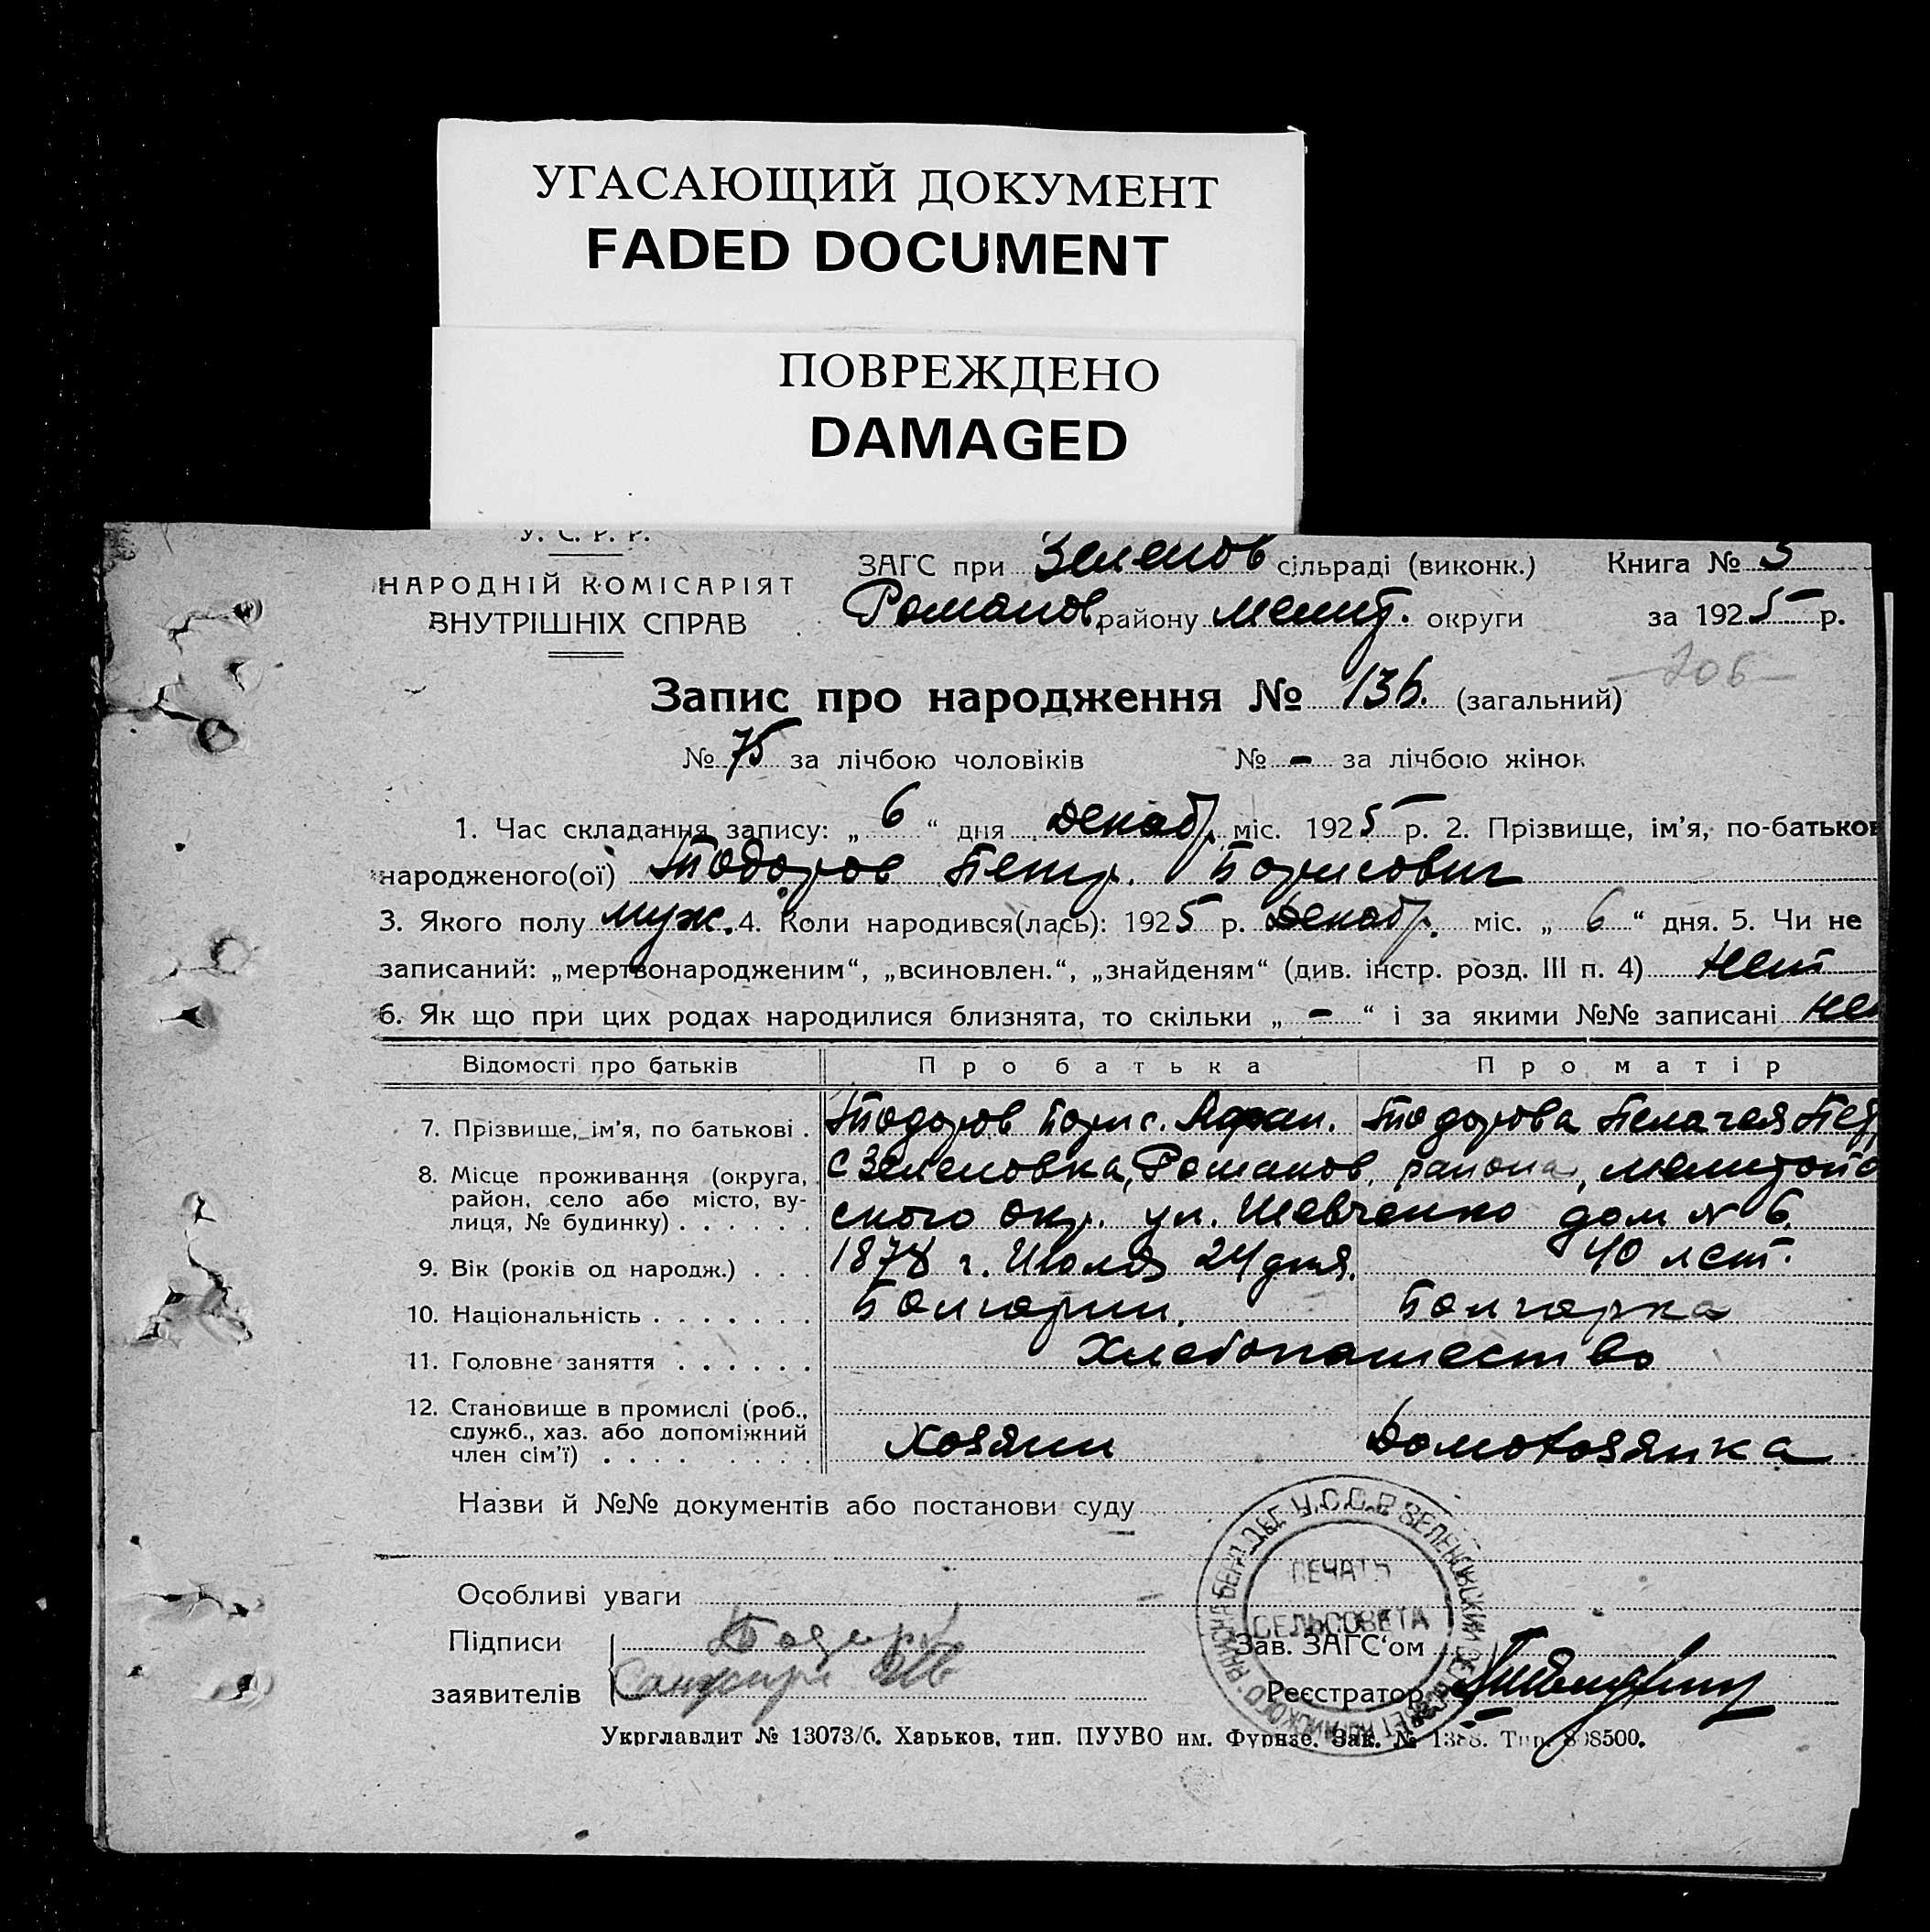 УГАСАЮЩИЙ ДОКУМЕНТ
FADED DOCUMENT
ПОВРЕЖДЕНО
DAMAGED
У. С. Р. Р.
НАРОДНІЙ КОМІСАРІЯТ
ВНУТРІШНІХ СПРАВ
ЗАГС при Зеленов сільраді (виконк.) Книга № 3
Романов. району Мелит. округи за 1925 р.
Запис про народження № 136. (загальний)
№ 75 за лічбою чоловіків № - за лічбою жінок
1. Час складання запису: „ 6 “ дня Декабр. міс. 1925 р. 2. Прізвище, ім’я, по-батькові
народженого(ої) Тодоров Петр. Борисович
3. Якого полу муж. 4. Коли народився(лась): 1925 р. Декабр. міс. „ 6 “ дня. 5. Чи не
записаний: „мертвонародженим“, „всиновлен.“, „знайденям“ (див. інстр. розд. III п. 4) нет
6. Як що при цих родах народилися близнята, то скільки „ - “ і за якими №№ записані нет
Відомості про батьків Про батька Про матір
7. Прізвище, ім’я, по батькові . Тодоров Борис. Афан. Тодорова Пелагея Пет
8. Місце проживання (округа, район, село або місто, вулиця, № будинку) . . . . . . с Зеленовка, Романов, района, Мелитопо
ского окр. ул. Шевченко дом № 6.
9. Вік (років од народж.) . . . 1878 г. Июля 24 дня. 40 лет.
10. Національність . . . . . . . Болгарин. Болгарка
11. Головне заняття . . . . . . Хлебопашество
12. Становище в промислі (роб., служб., хаз. або допоміжний член сім’ї) . . . . . . . . . Хозяин Домохозянка
Назви й №№ документів або постанови суду
Особливі уваги
Підписи
заявителів
Зав. ЗАГС‘ом
Реєстратор
У.С.С.Р ЗЕЛЕНОВСКИЙ
ПЕЧАТЬ
СЕЛЬСОВЕТА
Укрглавлит № 13073/б. Харьков, тип. ПУУВО им. Фурнзе. Зак. № 1388. Тир. 808500.